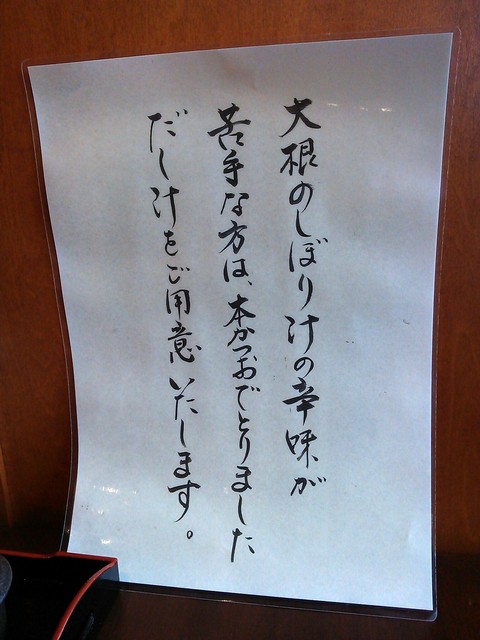 大根のしぼり汁の辛味が
苦手な方は、本かつおでとりました
だし汁をご用意いたします。